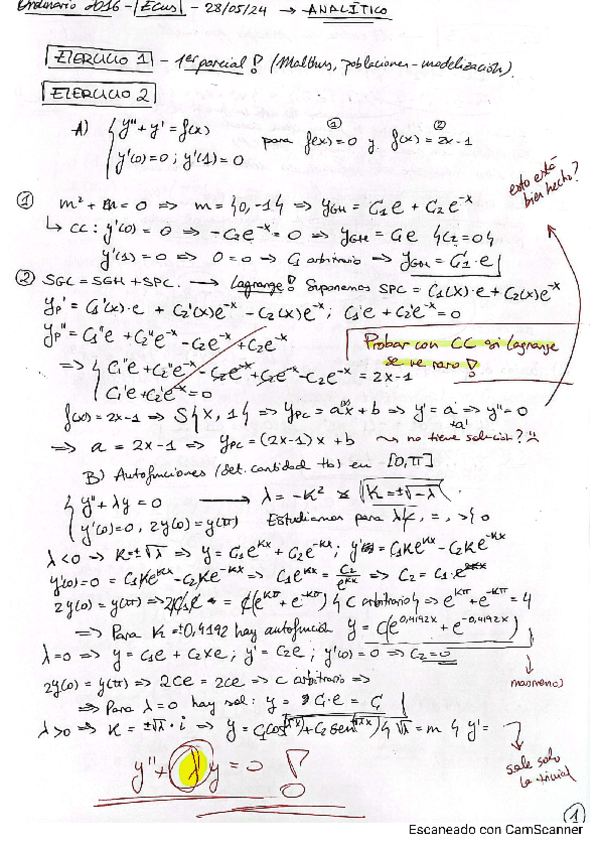 Ordinario 2016 - Ecus - 28/05/24 → ANALÍTICO
EJERCICIO 1 - 1er parcial! (Malthus, poblaciones - modelización).
EJERCICIO 2
A) { y'' + y' = f(x) para f(x) = 0 y f(x) = 2x-1
① ②
y'(0) = 0 ; y'(1) = 0
esto está
bien hecho?
① m² + m = 0 => m = {0, -1} => yGH = C1e + C2e^-x
↳ CC: y'(0) = 0 => -C2e^-x = 0 => yGH = C1e {C2 = 0}
y'(1) = 0 => 0 = 0 => C1 arbitrario => yGH = C1·e
② SGC = SGH + SPC. → Lagrange! Suponemos SPC = C1(x)·e + C2(x)e^-x
yp' = C1'(x)·e + C2'(x)e^-x - C2(x)e^-x ; C1'e + C2'e^-x = 0
yp'' = C1''e + C2''e^-x - C2e^-x + C2e^-x
Probar con CC si Lagrange
se ve raro!
=> { C1''e + C2''e^-x - C2e^-x + C2e^-x - C2e^-x = 2x-1
C1'e + C2'e^-x = 0
f(x) = 2x-1 → S{x, 1} => yPC = ax + b => y' = a => y'' = 0
+a'
=> a = 2x-1 => yPC = (2x-1)x + b ~ no tiene solución?
B) Autofunciones (det. cantidad tb) en [0,π]
{ y'' + λy = 0 → λ = -K² K = ±√-λ
y'(0) = 0, 2y(0) = y(π) Estudiamos para λ <, =, > 0
λ<0 → K = ±√λ => y = C1e^Kx + C2e^-Kx ; y' = C1Ke^Kx - C2Ke^-Kx
y'(0) = 0 = C1Ke^Kx - C2Ke^-Kx => C1e^Kx = C2/e^Kx => C2 = C1·e^2Kx
2y(0) = y(π) => = C(e^Kπ + e^-Kπ) {C arbitrario} => e^Kπ + e^-Kπ = 4
=> Para K = ±0,4192 hay autofunción y = C(e^0,4192x + e^-0,4192x)
λ=0 => y = C1e + C2xe ; y' = C2e ; y'(0) = 0 => C2 = 0
2y(0) = y(π) => 2Ce = 2Ce => C arbitrario =>
masmenos
=> Para λ = 0 hay sol: y = C·e = C
λ>0 => K = ±√λ · i => y = C1cos(√λx) + C2sen(√λx) {√λ = m} y' =
sale solo
la trivial
y'' + λy = 0 !
①
Escaneado con CamScanner